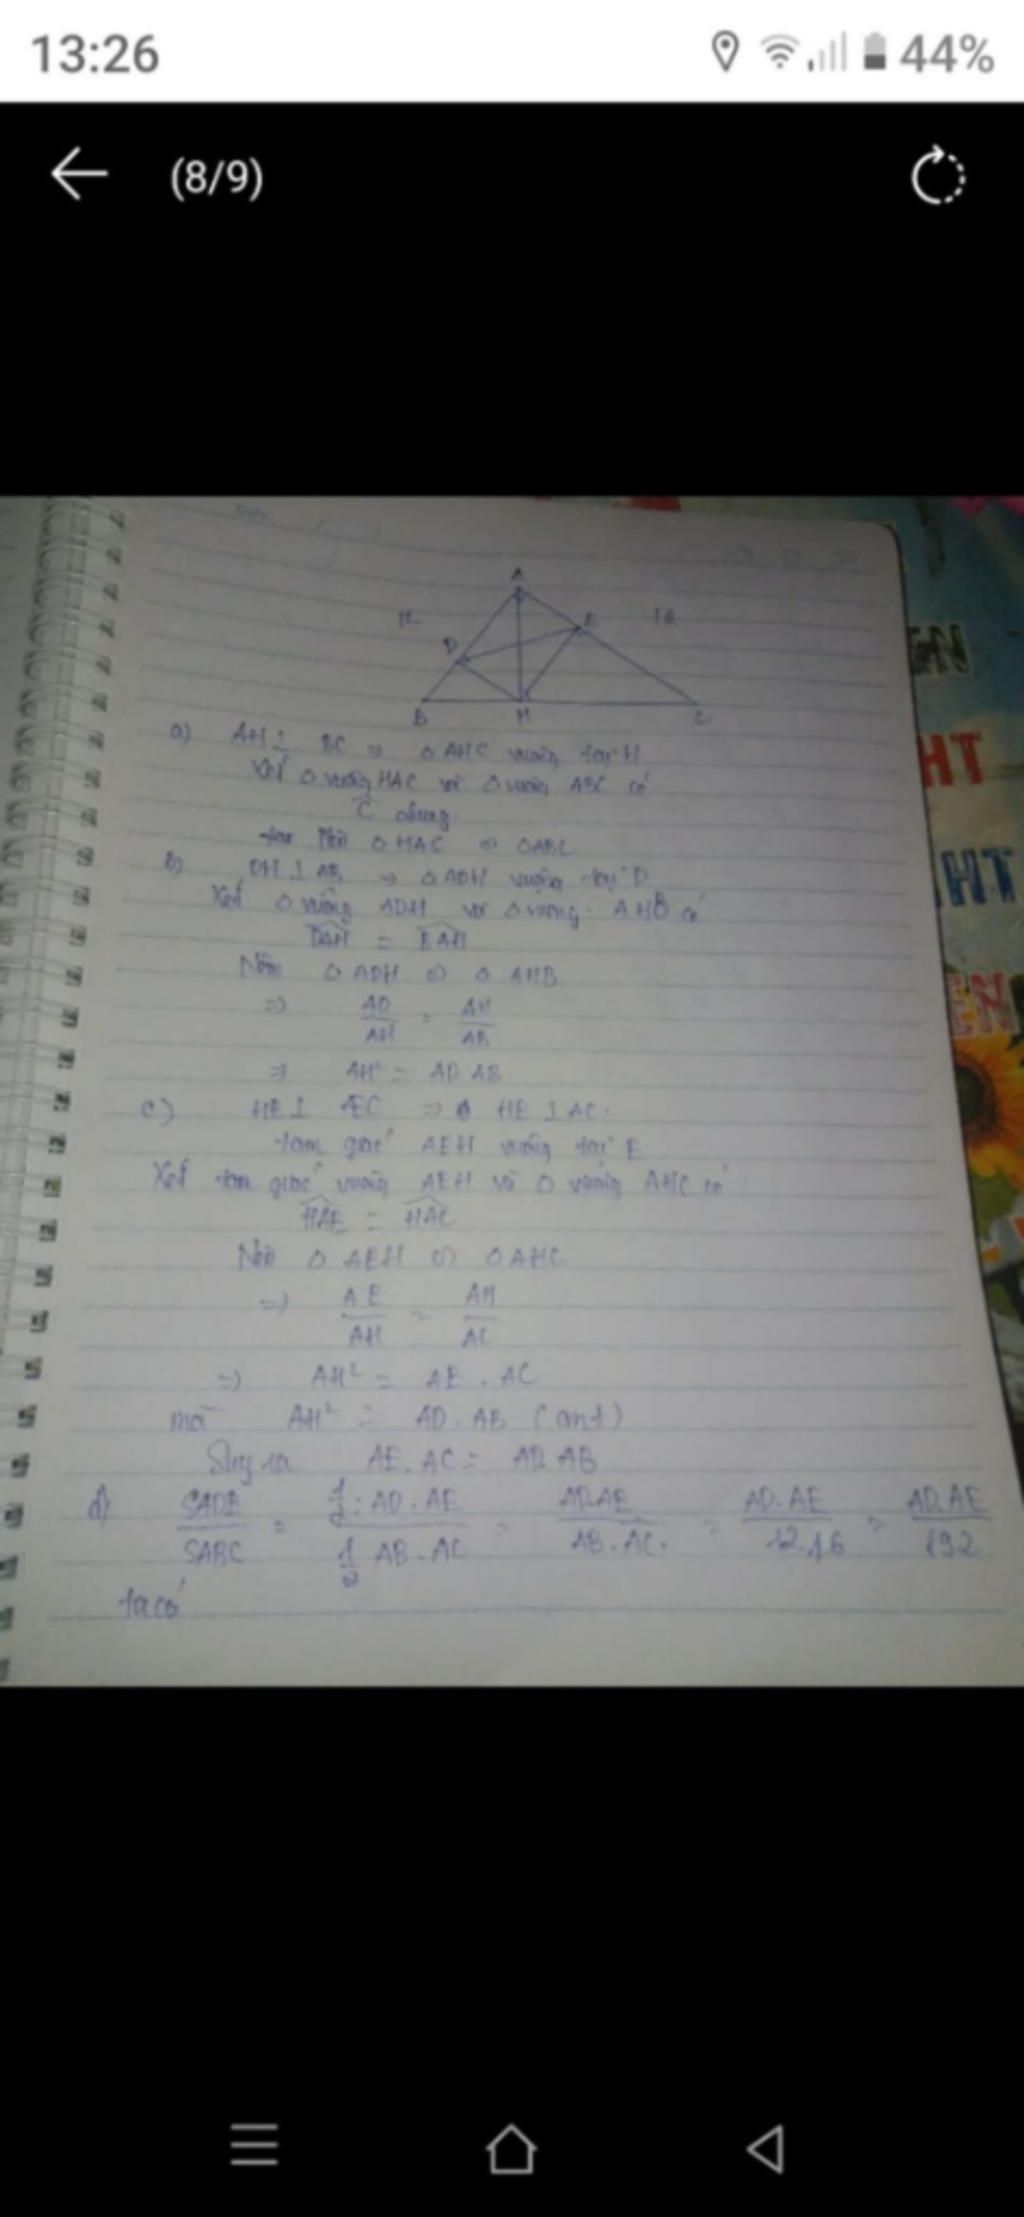 13:26
44%
(8/9)
A
12
E
16
D
B
H
C
a) AH ⊥ BC => Δ AHC vuông tại H
Xét Δ vuông HAC và Δ vuông ABC có
Ĉ chung
Nên Δ HAC ∽ ΔABC
b) DH ⊥ AB => Δ ADH vuông tại D
Xét Δ vuông ADH và Δ vuông AHB có
DAH =
Nên Δ ADH ∽ Δ AHB
=> AD/AH = AH/AB
=> AH² = AD AB
c) HE ⊥ => HE ⊥ AC.
tam giác AEH vuông tại E
Xét tam giác vuông AEH và Δ vuông AHC có
HAE = HAC
Nên Δ AEH ∽ Δ AHC
=> AE/AH = AH/AC
=> AH² = AE . AC
mà AH² = AD. AB (cmt)
Suy ra AE. AC = AD. AB
d) SADE/SABC = 1/2 . AD . AE / 1/2 AB . AC = AD.AE/AB.AC. = AD.AE/12.16 = AD.AE/192
ta có
EN
HT
HT
EN